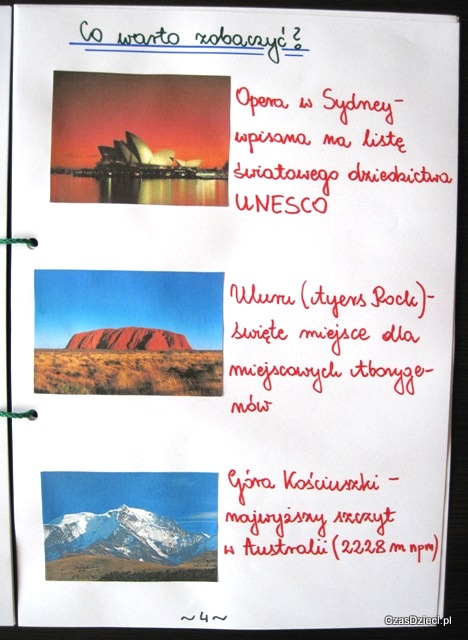 Co warto zobaczyć?
Opera w Sydney-
wpisana na listę
światowego dziedzictwa
UNESCO
Uluru (Ayers Rock)-
święte miejsce dla
miejscowych Aboryge-
nów
Góra Kościuszki -
najwyższy szczyt
w Australii (2228 m npm)
~4~
CzasDzieci.pl